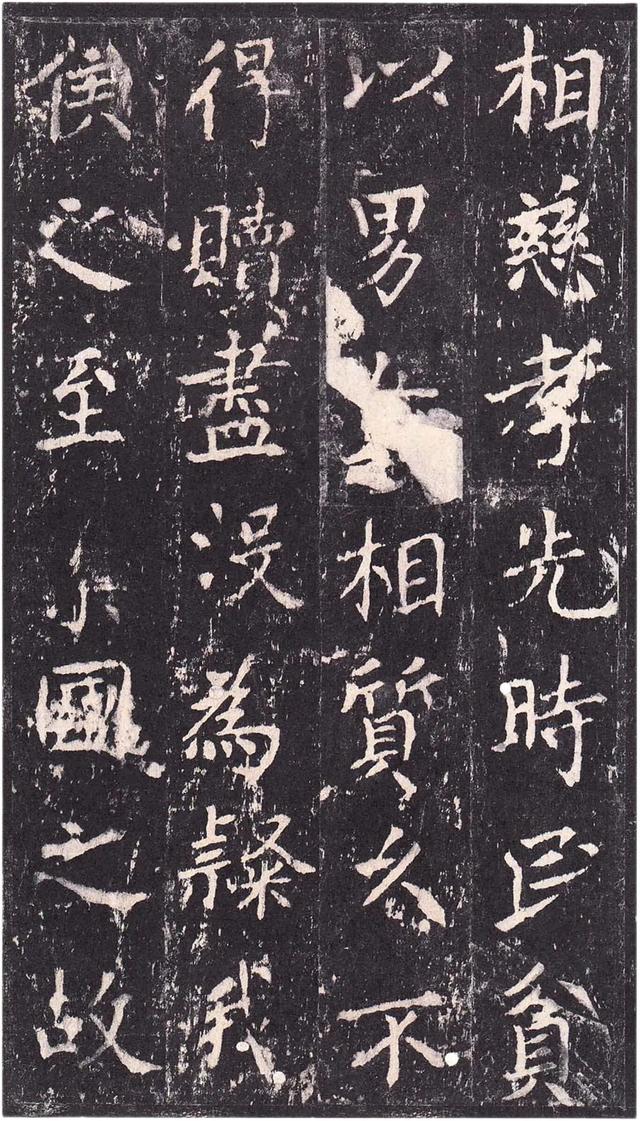 相慈孝先時民貧
以男女相質久不
得贖盡沒為隸我
侯之至國之故